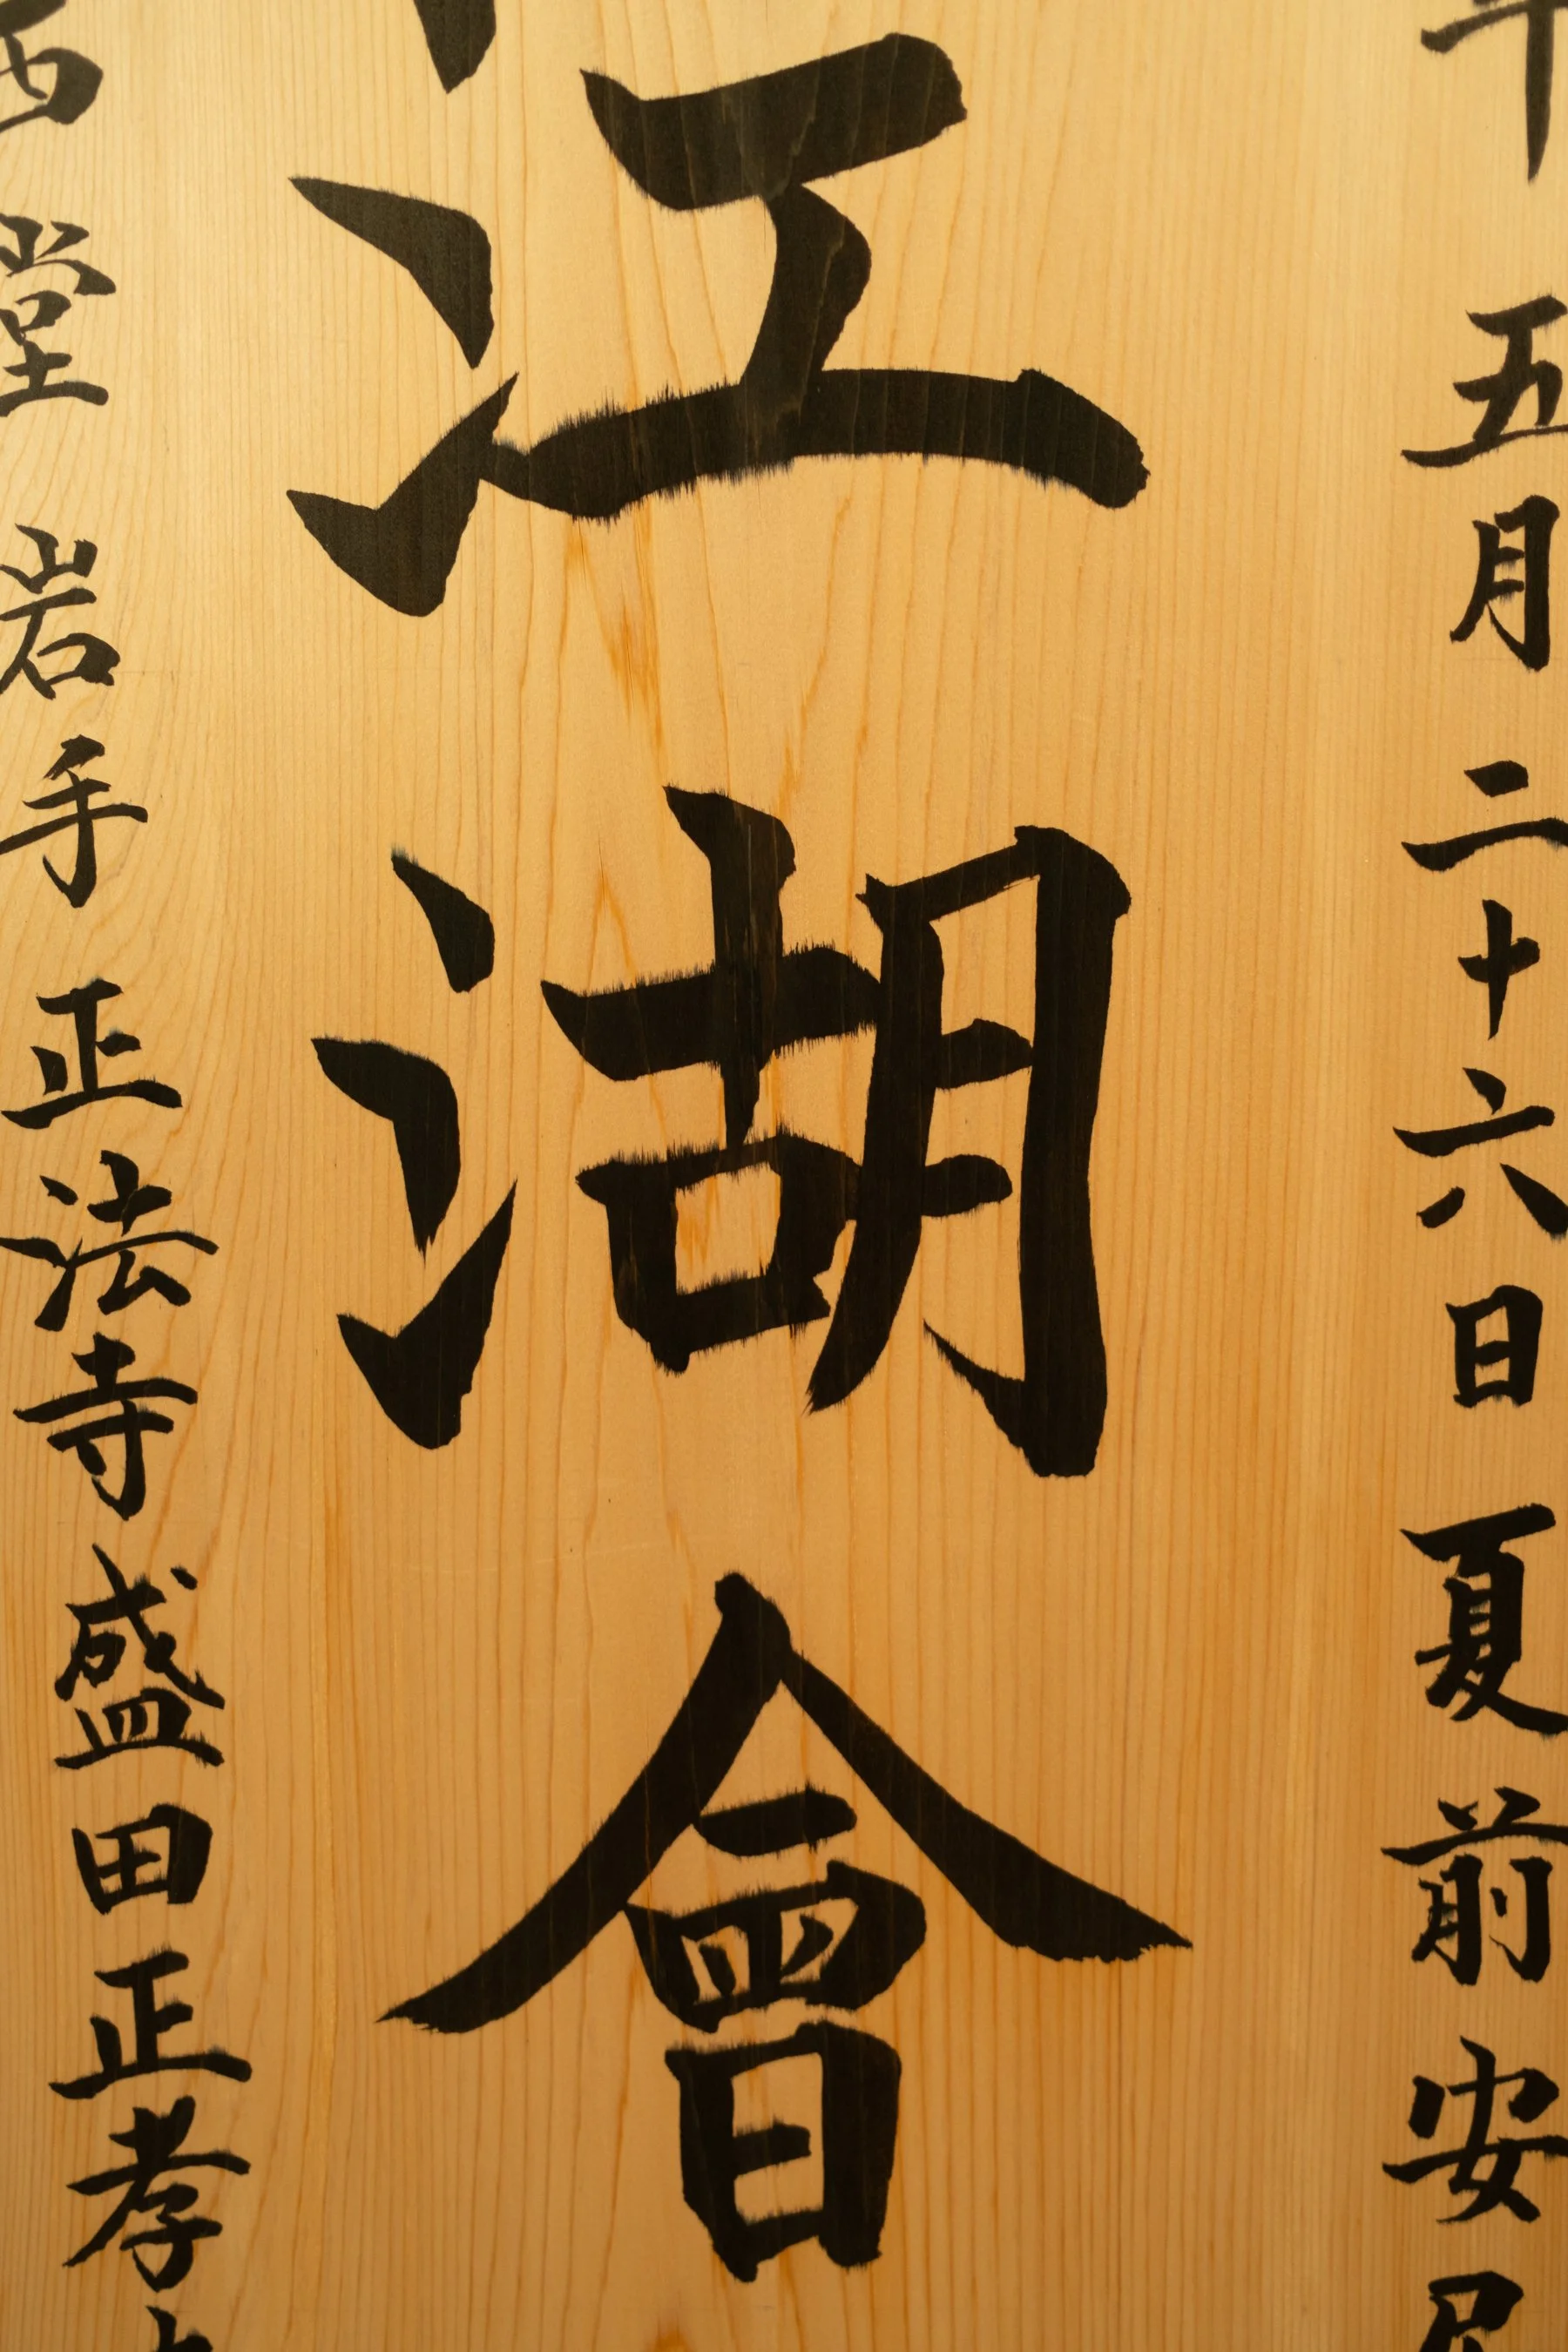 年五月二十六日夏前安居
江湖會
西堂岩手正法寺盛田正孝